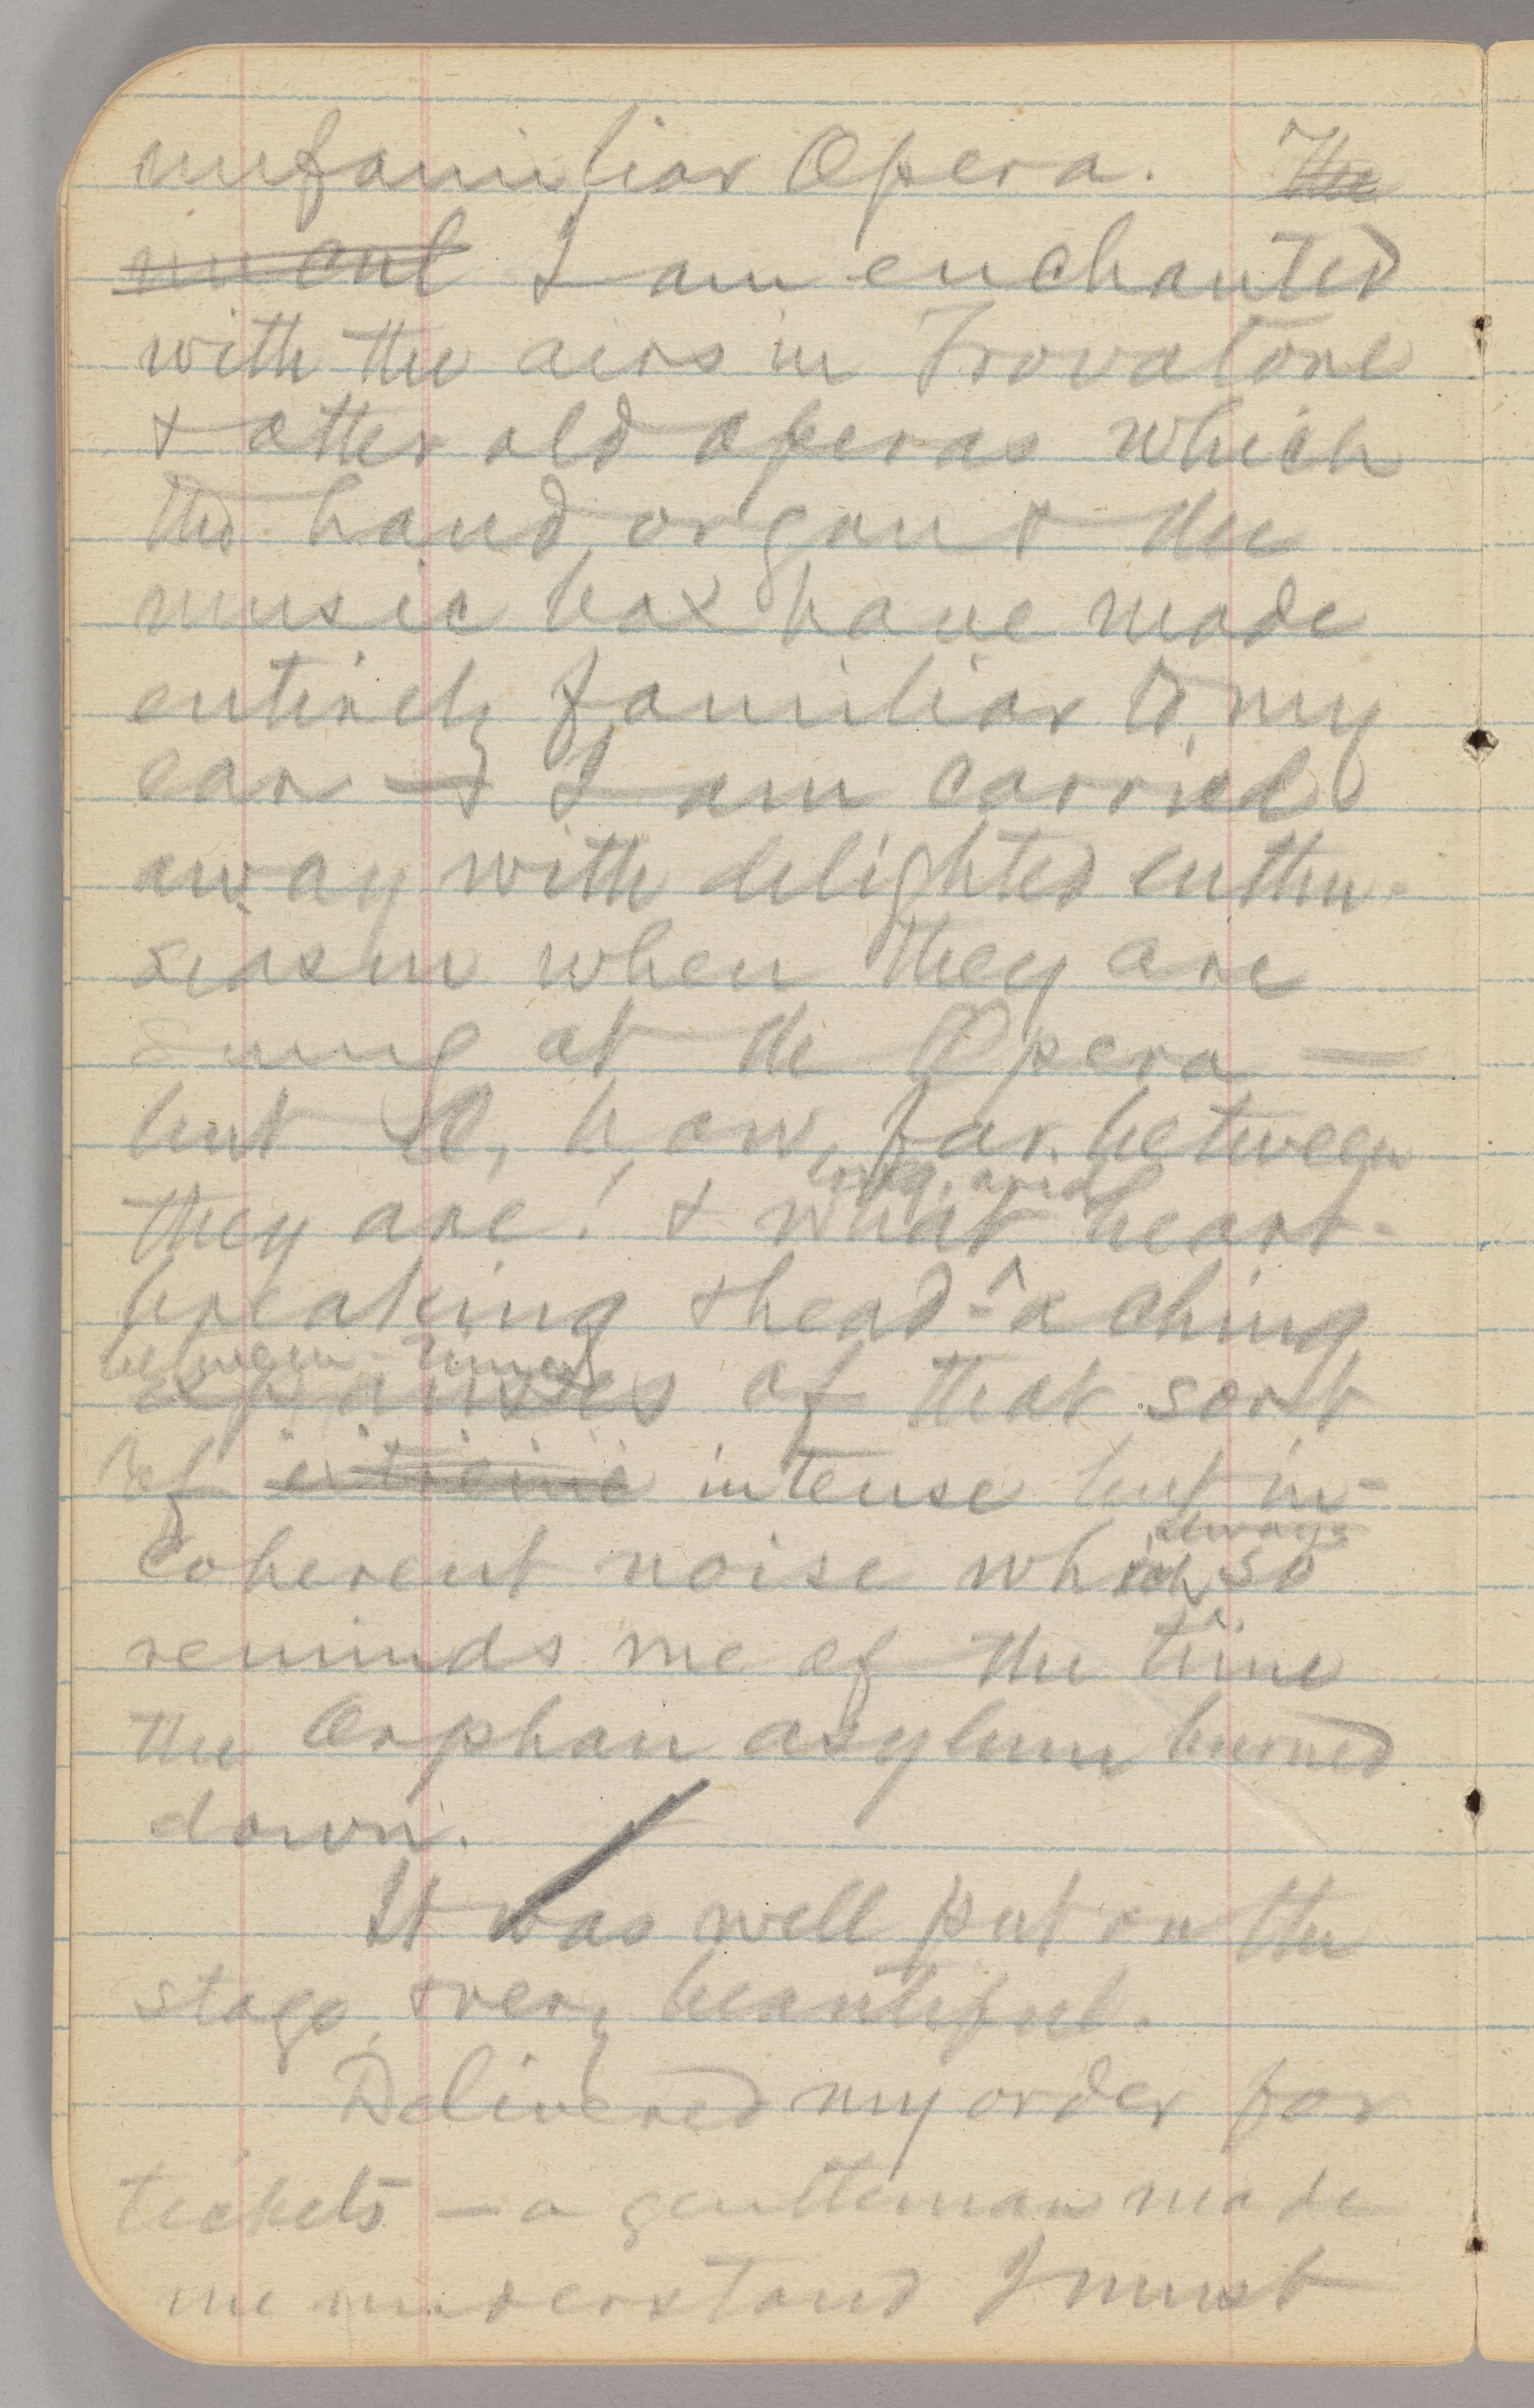 unfamiliar Opera. The
I am enchanted
with the airs in Trovatore
& other old operas which
the hand organ & the
music box have made
entirely familiar to my
ear — & I am carried
away with delighted enthu-
siasm when they are
sung at the Opera —
but O, how far between
long, arid
they are! & what heart-
breaking & head-aching
between-times
expanses of that sort
of intense but in-
always
coherent noise which so
reminds me of the time
the Orphan asylum burned
down.
It was well put on the
stage, & very beautiful.
Delivered my order for
tickets — a gentleman made
me understand I must